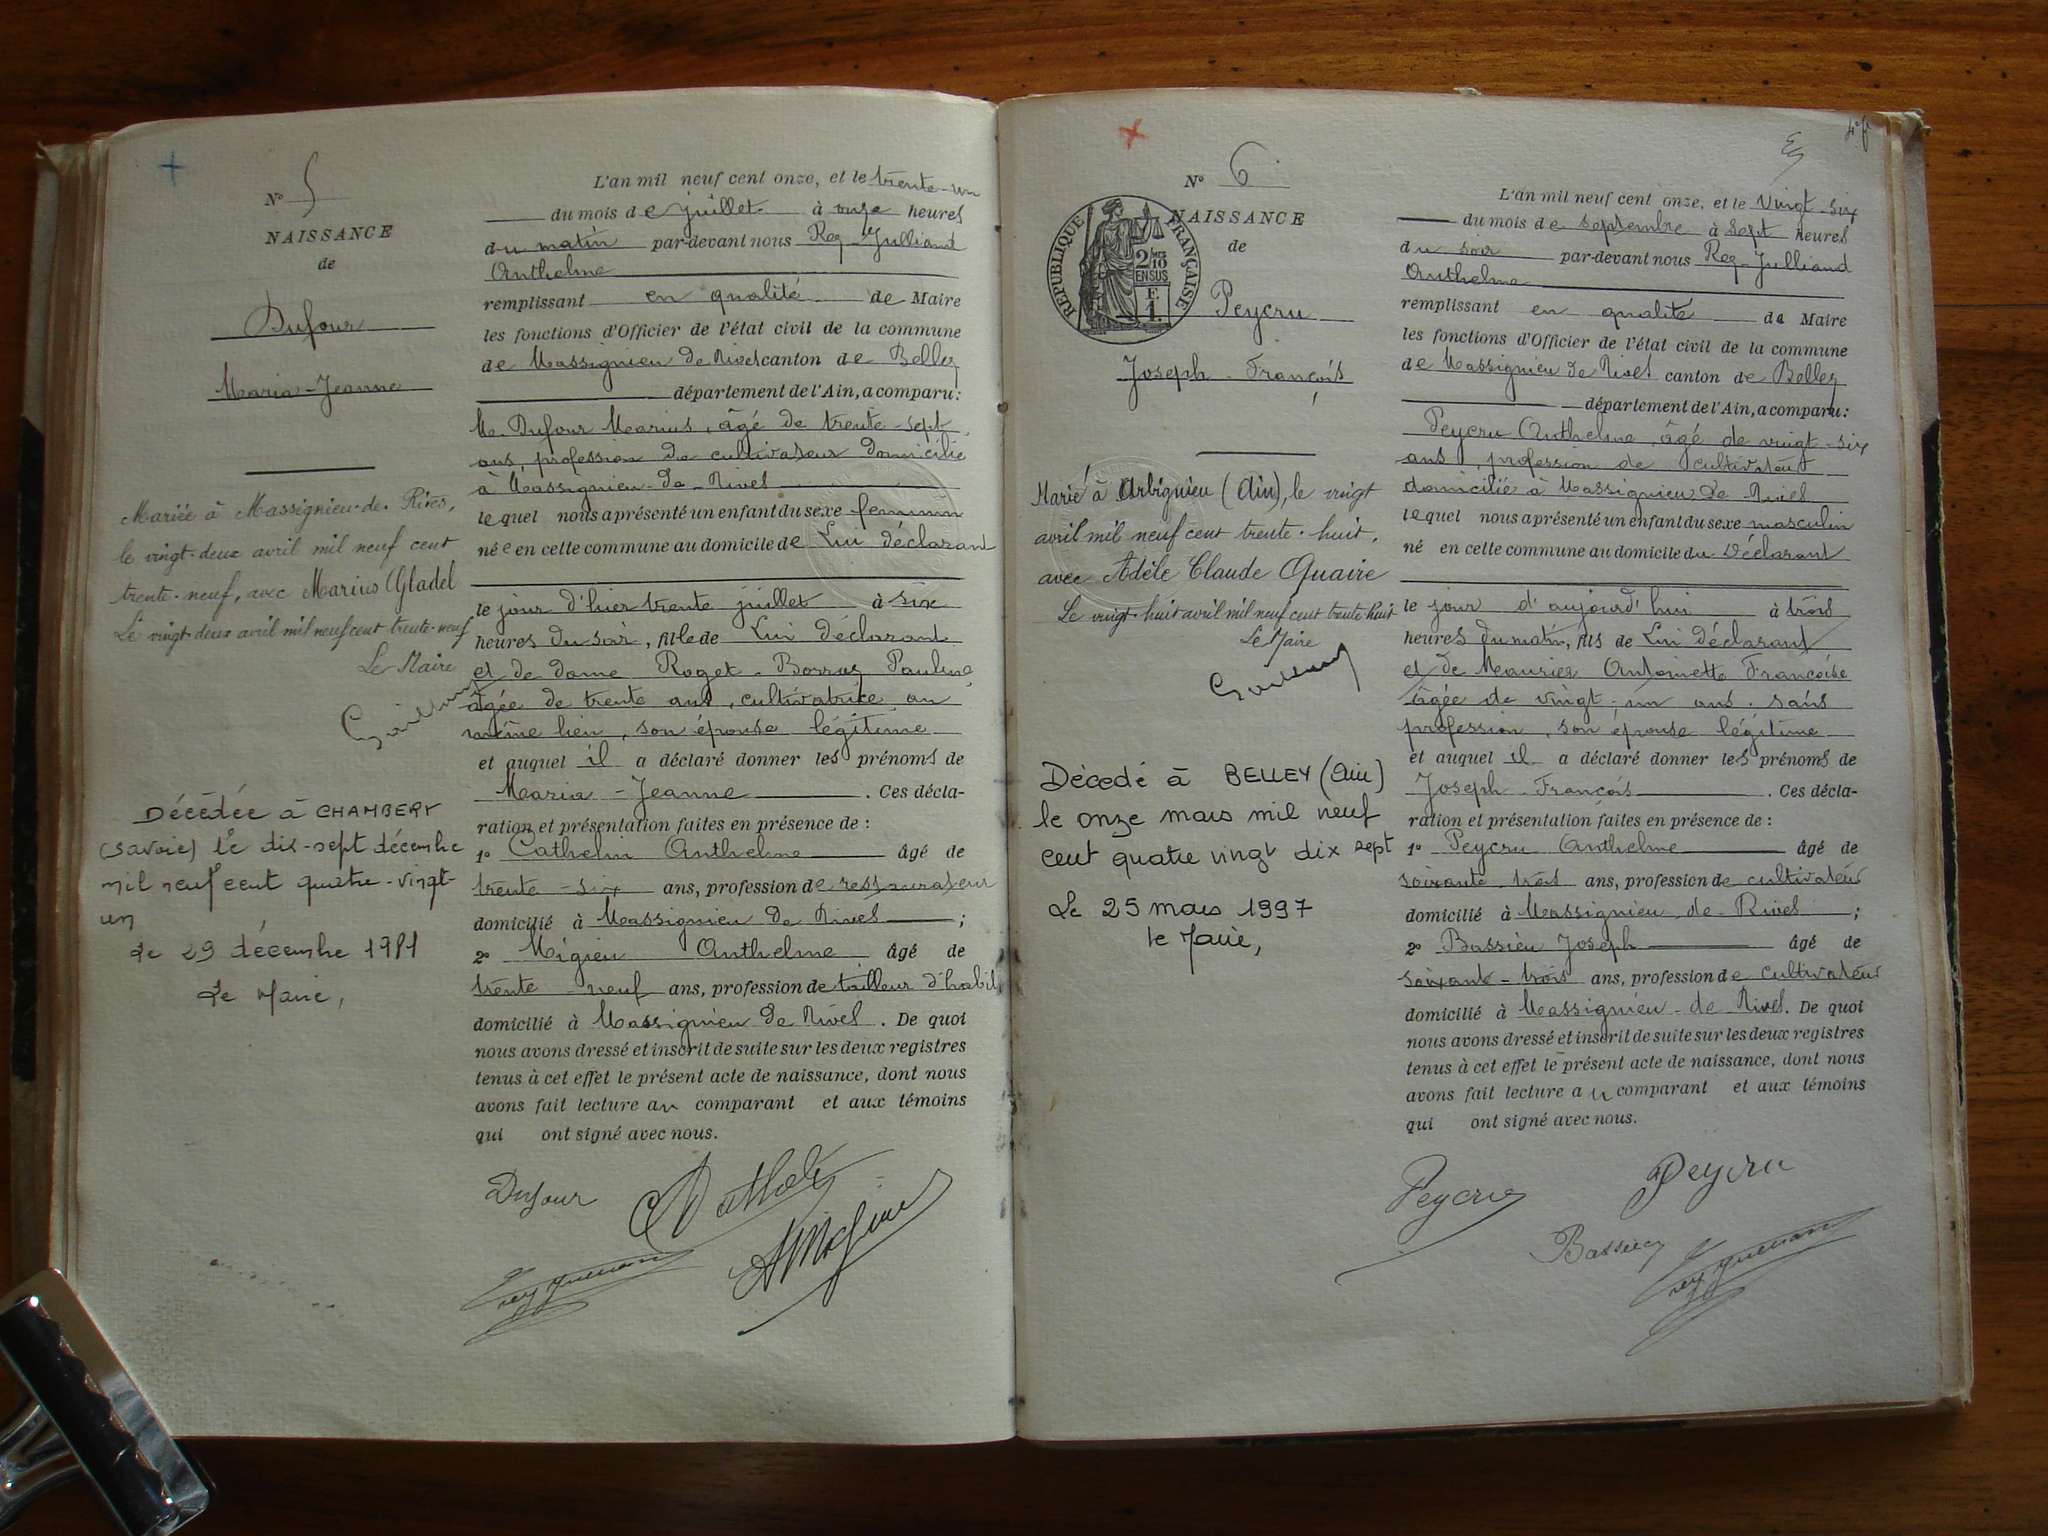 N° 5
NAISSANCE
de
Dufour
Maria-Jeanne
Mariée à Massignieu-de-Rives,
le vingt-deux avril mil neuf cent
trente-neuf, avec Marius Gladel
Le vingt-deux avril mil neuf cent trente-neuf
Le Maire
Décédée à CHAMBERY
(Savoie) le dix-sept décembre
mil neuf cent quatre-vingt-
un
Le 29 décembre 1981
Le Maire,
L'an mil neuf cent onze, et le trente-un
du mois de juillet à onze heures
du matin par-devant nous Rey-Julliand
Anthelme
remplissant en qualité de Maire
les fonctions d'Officier de l'état civil de la commune
de Massignieu de Rives canton de Belley
département de l'Ain, a comparu:
M. Dufour Marius, âgé de trente-sept
ans, profession de cultivateur domicilié
à Massignieu-de-Rives
lequel nous a présenté un enfant du sexe feminin
née en cette commune au domicile de Lui déclarant
le jour d'hier trente juillet à six
heures du soir, fille de Lui déclarant
et de dame Roget-Borruz Pauline
âgée de trente ans, cultivatrice au
même lieu, son épouse légitime
et auquel il a déclaré donner les prénoms de
Maria-Jeanne. Ces décla-
ration et présentation faites en présence de:
1° Cathelin Anthelme âgé de
trente-six ans, profession de restaurateur
domicilié à Massignieu de Rives;
2° Migieu Anthelme âgé de
trente-neuf ans, profession de tailleur d'habits
domicilié à Massignieu de Rives. De quoi
nous avons dressé et inscrit de suite sur les deux registres
tenus à cet effet le présent acte de naissance, dont nous
avons fait lecture au comparant et aux témoins
qui ont signé avec nous.
Dufour
4e f
N° 6
RÉPUBLIQUE FRANÇAISE
2/10
EN SUS
E
1.
NAISSANCE
de
Peycru
Joseph-François
Marié à Arbignieu (Ain), le vingt
avril mil neuf cent trente-huit,
avec Adèle Claude Quaire
Le vingt-huit avril mil neuf cent trente huit
Le Maire
Décédé à BELLEY (Ain)
le onze mars mil neuf
cent quatre vingt dix sept
Le 25 mars 1997
le Maire,
L'an mil neuf cent onze, et le vingt-six
du mois de septembre à sept heures
du soir par-devant nous Rey-Julliand
Anthelme
remplissant en qualité de Maire
les fonctions d'Officier de l'état civil de la commune
de Massignieu de Rives canton de Belley
département de l'Ain, a comparu:
Peycru Anthelme, âgé de vingt-six
ans, profession de cultivateur
domicilié à Massignieu de Rives
lequel nous a présenté un enfant du sexe masculin
né en cette commune au domicile du Déclarant
le jour d'aujourd'hui à trois
heures du matin, fils de Lui déclarant
et de Meurier Antoinette Françoise
âgée de vingt-un ans, sans
profession, son épouse légitime
et auquel il a déclaré donner les prénoms de
Joseph-François. Ces décla-
ration et présentation faites en présence de:
1° Peycru Anthelme âgé de
soixante-trois ans, profession de cultivateur
domicilié à Massignieu de Rives;
2° Bassieu Joseph âgé de
soixante-trois ans, profession de cultivateur
domicilié à Massignieu-de-Rives. De quoi
nous avons dressé et inscrit de suite sur les deux registres
tenus à cet effet le présent acte de naissance, dont nous
avons fait lecture au comparant et aux témoins
qui ont signé avec nous.
Peycru
Peycru
Bassieu